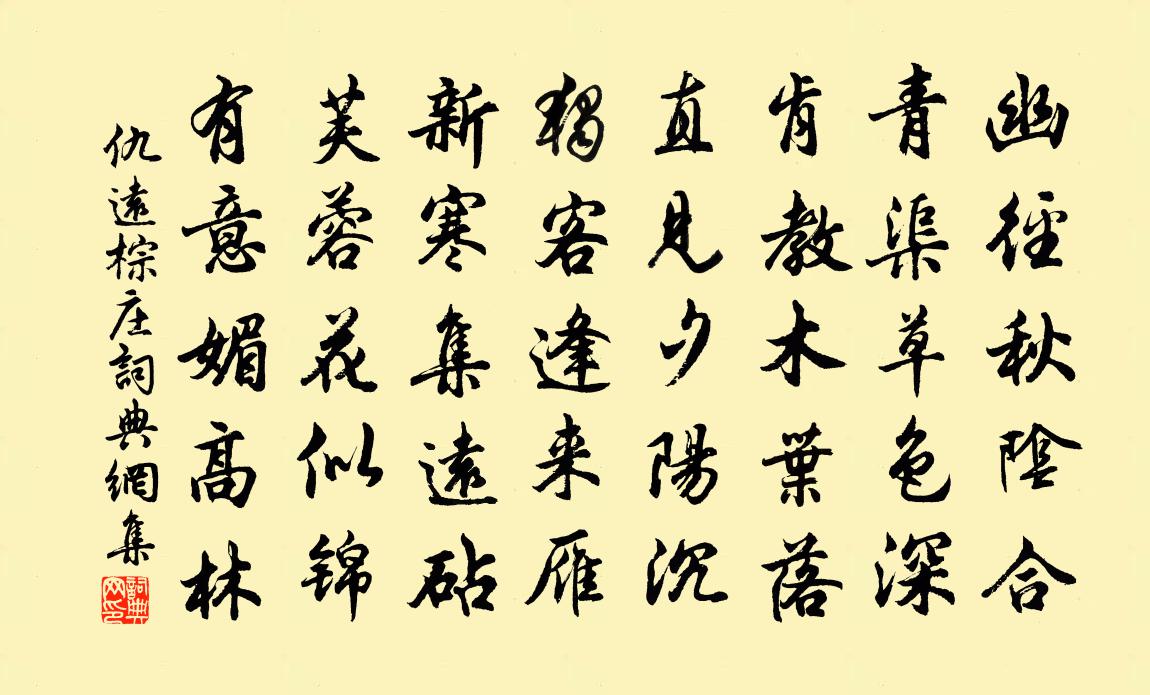 幽徑秋陰合
青渠草色深
肯教木葉落
直見夕陽沉
獨客逢来雁
新寒集遠砧
芙蓉花似錦
有意媚高林
仇遠棕庄詞典網集
詞典網印